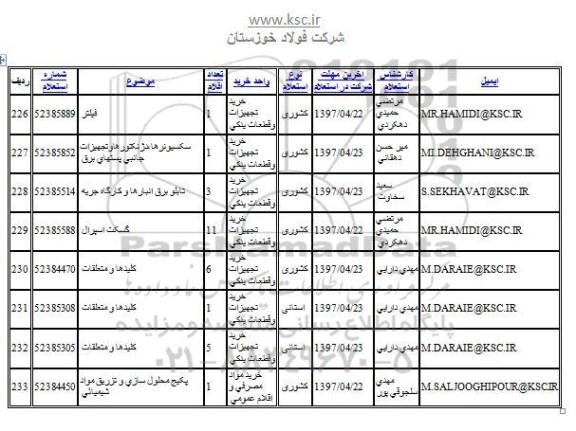 www.ksc.ir
شرکت فولاد خوزستان
ردیف شماره استعلام موضوع تعداد اقلام واحد خرید نوع استعلام آخرین مهلت شرکت در استعلام کارشناس استعلام ایمیل
226 52385889 فیلتر 1 خرید تجهیزات وقطعات یدکي کشوری 1397/04/22 مرتضي حمیدي دهکردي MR.HAMIDI@KSC.IR
227 52385852 سکسیونرها دژنکتورهاوتجهیزات جانبي پستهاي برق 1 خرید تجهیزات وقطعات یدکي کشوری 1397/04/23 میر حسن دهقاني MI.DEHGHANI@KSC.IR
228 52385514 تابلو برق انبارها و کارگاه جریه 3 خرید تجهیزات وقطعات یدکي کشوری 1397/04/23 سعید سخاوت S.SEKHAVAT@KSC.IR
229 52385588 گسکت اسپرال 11 خرید تجهیزات وقطعات یدکي کشوری 1397/04/22 مرتضي حمیدي دهکردي MR.HAMIDI@KSC.IR
230 52384470 کلیدها و متعلقات 6 خرید تجهیزات وقطعات یدکي کشوری 1397/04/23 مهدي دارایي M.DARAIE@KSC.IR
231 52385308 کلیدها و متعلقات 1 خرید تجهیزات وقطعات یدکي استانی 1397/04/23 مهدي دارایي M.DARAIE@KSC.IR
232 52385305 کلیدها و متعلقات 5 خرید تجهیزات وقطعات یدکي استانی 1397/04/23 مهدي دارایي M.DARAIE@KSC.IR
233 52384450 پکیج محلول سازي و تزریق مواد شیمیائي 1 خرید مواد مصرفي و اقلام عمومي کشوری 1397/04/22 مهدي سلجوقي پور M.SALJOOGHIPOUR@KSC.IR
ParsNamadData
پایگاه اطلاع رسانی مناقصه و مزایده